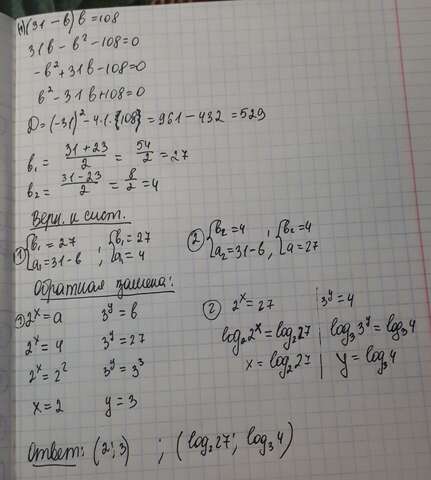 *) (31 - b) b = 108
31b - b² - 108 = 0
-b² + 31b - 108 = 0
b² - 31b + 108 = 0
D = (-31)² - 4·1·{108} = 961 - 432 = 529
b₁ = (31 + 23)/2 = 54/2 = 27
b₂ = (31 - 23)/2 = 8/2 = 4
Верн. к сист.
① { b₁ = 27 ; { b₁ = 27
a₁ = 31 - b ; a₁ = 4
② { b₂ = 4 ; { b₂ = 4
a₂ = 31 - b ; a = 27
Обратная замена:
① 2ˣ = a 3ʸ = b
2ˣ = 4 3ʸ = 27
2ˣ = 2² 3ʸ = 3³
x = 2 y = 3
② 2ˣ = 27 3ʸ = 4
log₂2ˣ = log₂27 log₃3ʸ = log₃4
x = log₂27 y = log₃4
Ответ: (2; 3) ; (log₂27; log₃4)